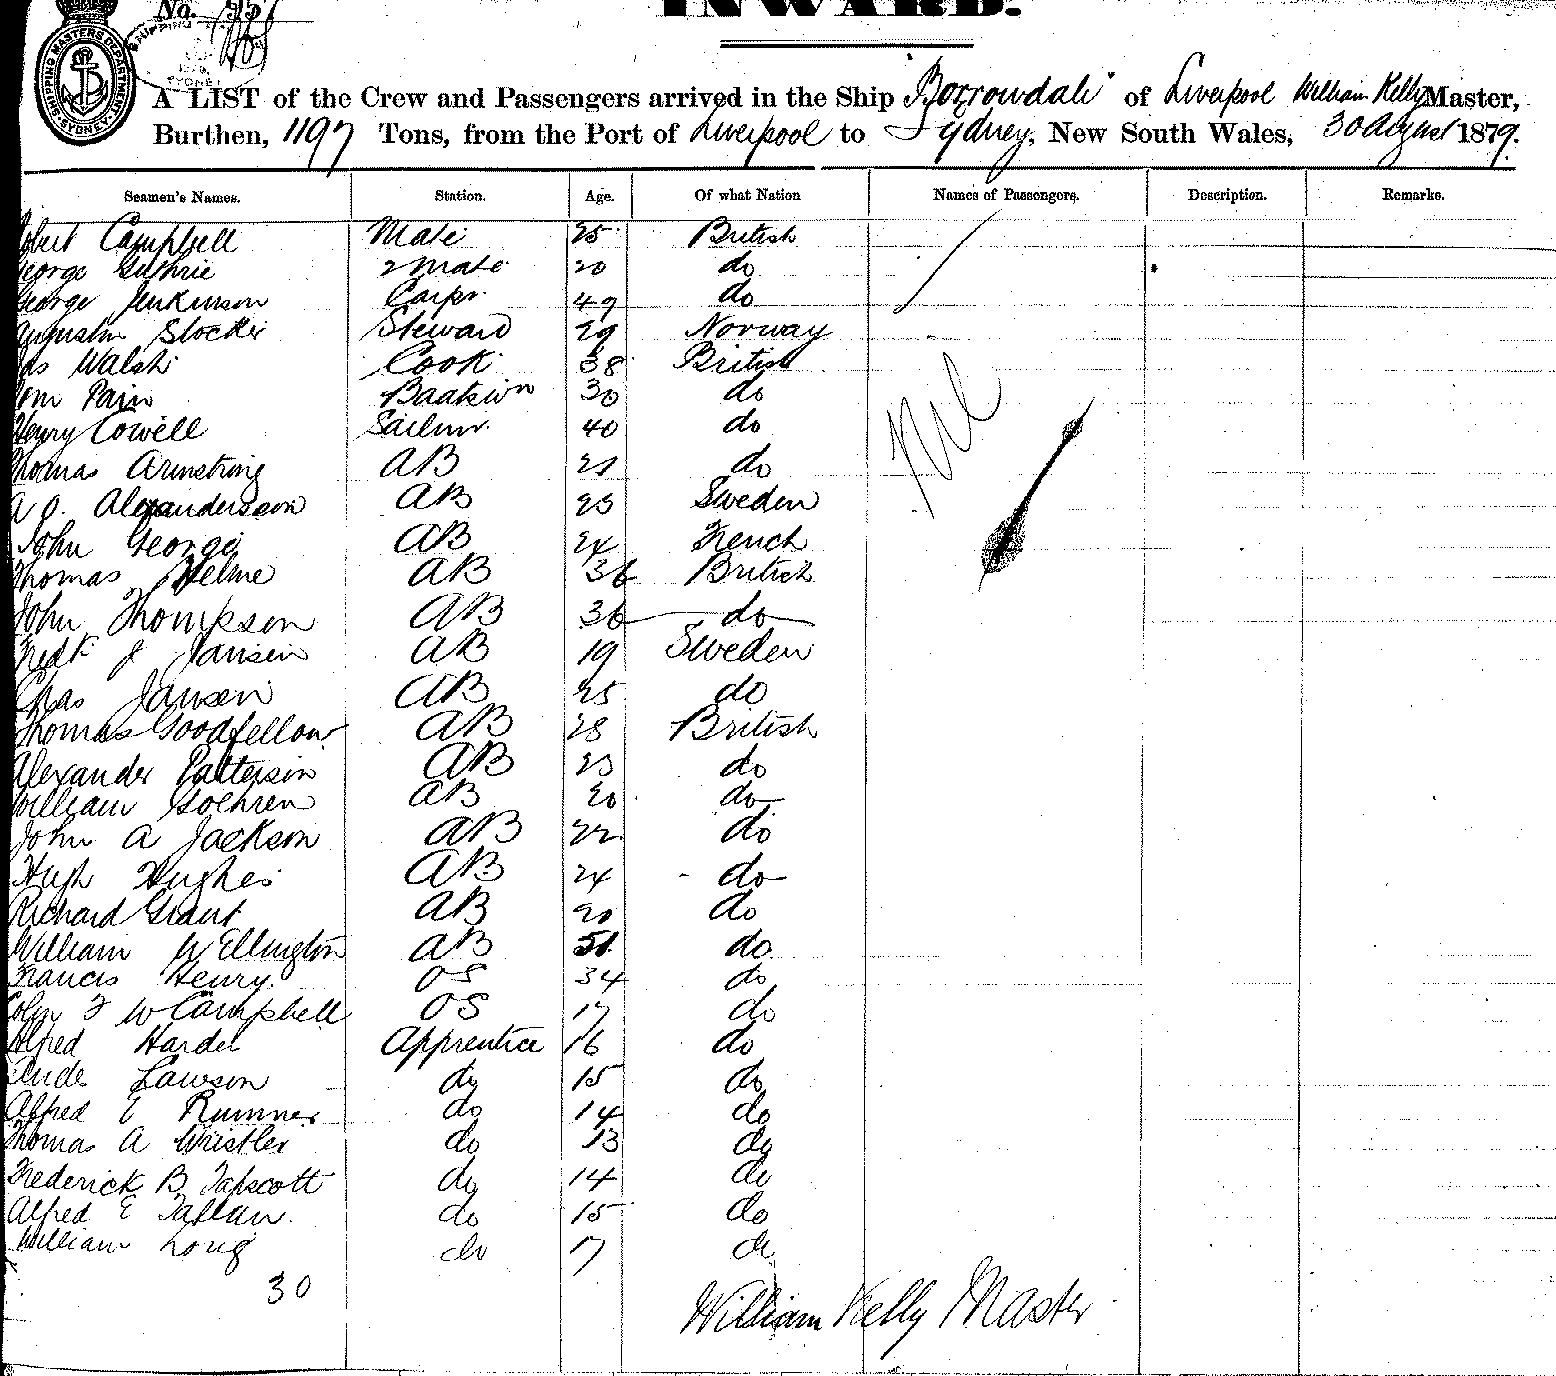 No.
INWARD.
SHIPPING MASTERS DEPARTMENT SYDNEY
A LIST of the Crew and Passengers arrived in the Ship Borrowdale of Liverpool William Kelly Master,
Burthen, 1197 Tons, from the Port of Liverpool to Sydney, New South Wales, 30 August 1879.
Seamen's Names. Station. Age. Of what Nation Names of Passengers. Description. Remarks.
obert Campbell Mate 25 British
George Guthrie 2 Mate 20 do
George Jenkinson Carpr. 49 do
Augustin Stocker Steward 29 Norway
Jas Walsh Cook 38 British
Tom Pain Boatswn 30 do
Henry Cowell Sailmr. 40 do
Nil
Thomas Armstrong AB 21 do
A O. Alexandersson AB 23 Sweden
John George AB 24 French
Thomas Helme AB 36 British
John Thompson AB 36 do
Fredk J Jansen AB 19 Sweden
Chas Jansen AB 25 do
Thomas Goodfellow AB 28 British
Alexander Patterson AB 23 do
William Gochren AB 20 do
John A Jackson AB 22 do
Hugh Hughes AB 24 do
Richard Grant AB 20 do
William Wellington AB 51 do
Francis Henry. OS 34 do
Colin F W Campbell OS 17 do
Alfred Harder Apprentice 16 do
Lawson do 15 do
Alfred E Rumner do 14 do
Thomas A Whistler do 13 do
Frederick B Tapscott do 14 do
Alfred E Tallan. do 15 do
William Long do 17 do
30
William Kelly Master